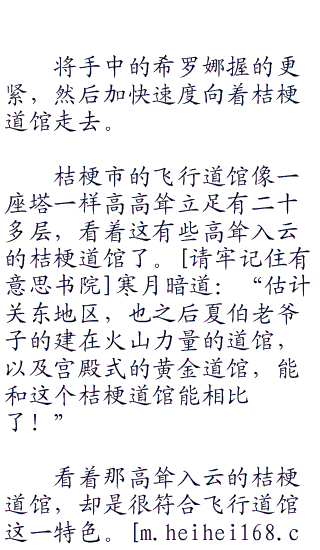 将手中的希罗娜握的更
紧，然后加快速度向着桔梗
道馆走去。
桔梗市的飞行道馆像一
座塔一样高高耸立足有二十
多层，看着这有些高耸入云
的桔梗道馆了。[请牢记住有
意思书院]寒月暗道：“估计
关东地区，也之后夏伯老爷
子的建在火山力量的道馆，
以及宫殿式的黄金道馆，能
和这个桔梗道馆能相比
了！”
看着那高耸入云的桔梗
道馆，却是很符合飞行道馆
这一特色。[m.heihei168.c